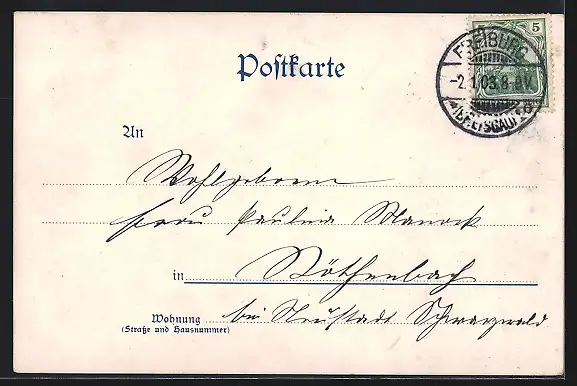 5
FREIBURG
-2.1.03.8-9V.
(BREISGAU)
Postkarte
An
Wohlgeboren
Frau Paulina
in Röthenbach
Wohnung bei Neustadt Schwarzwald
(Straße und Hausnummer)